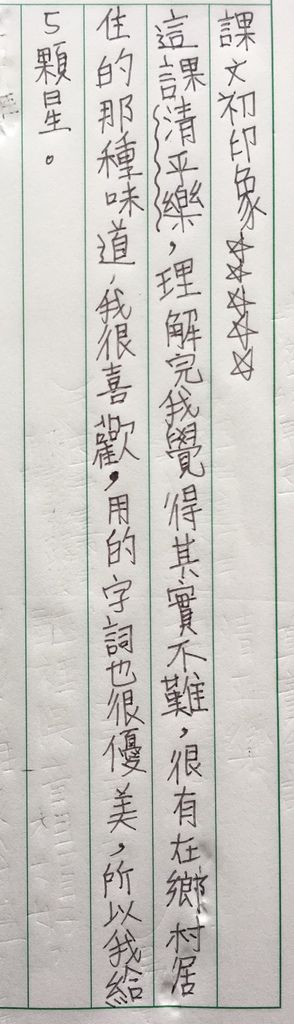 課文初印象☆☆☆☆☆
這課清平樂，理解完我覺得其實不難，很有在鄉村居
住的那種味道，我很喜歡，用的字詞也很優美，所以我給
5顆星。